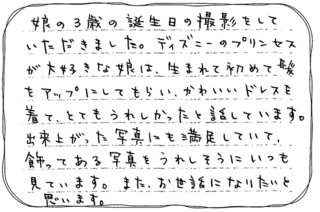 娘の3歳の誕生日の撮影をして
いただきました。ディズニーのプリンセス
が大好きな娘は、生まれて初めて髪
をアップにしてもらい、かわいいドレスを
着て、とてもうれしかったと話しています。
出来上がった写真にも満足していて、
飾ってある写真をうれしそうにいつも
見ています。また、お世話になりたいと
思います。